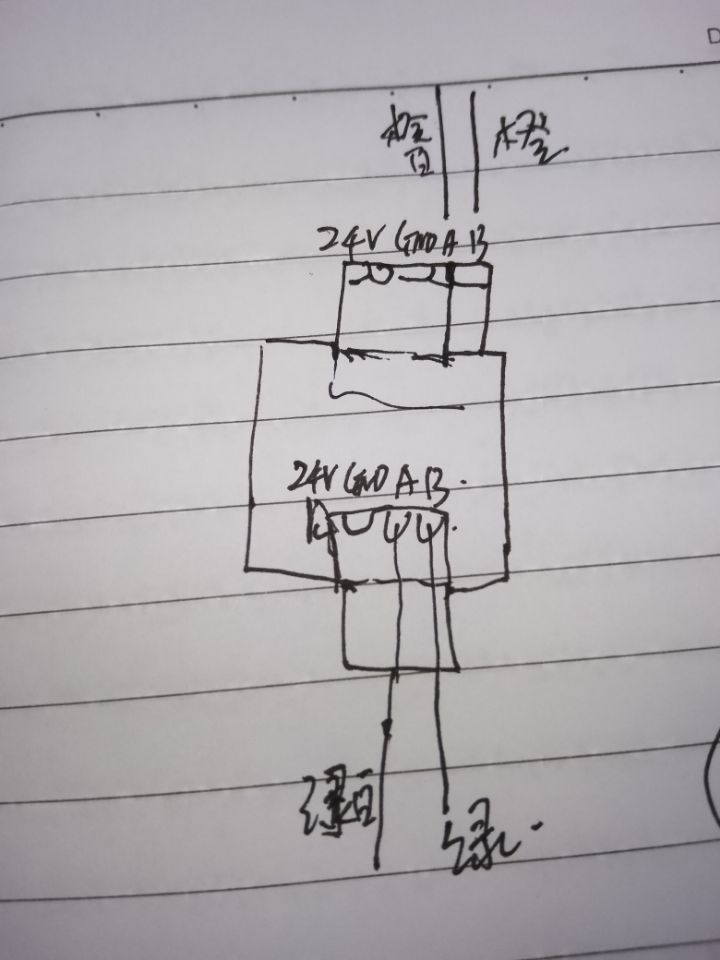 橙白
橙
24V GND A B
24V GND A B
绿白
绿